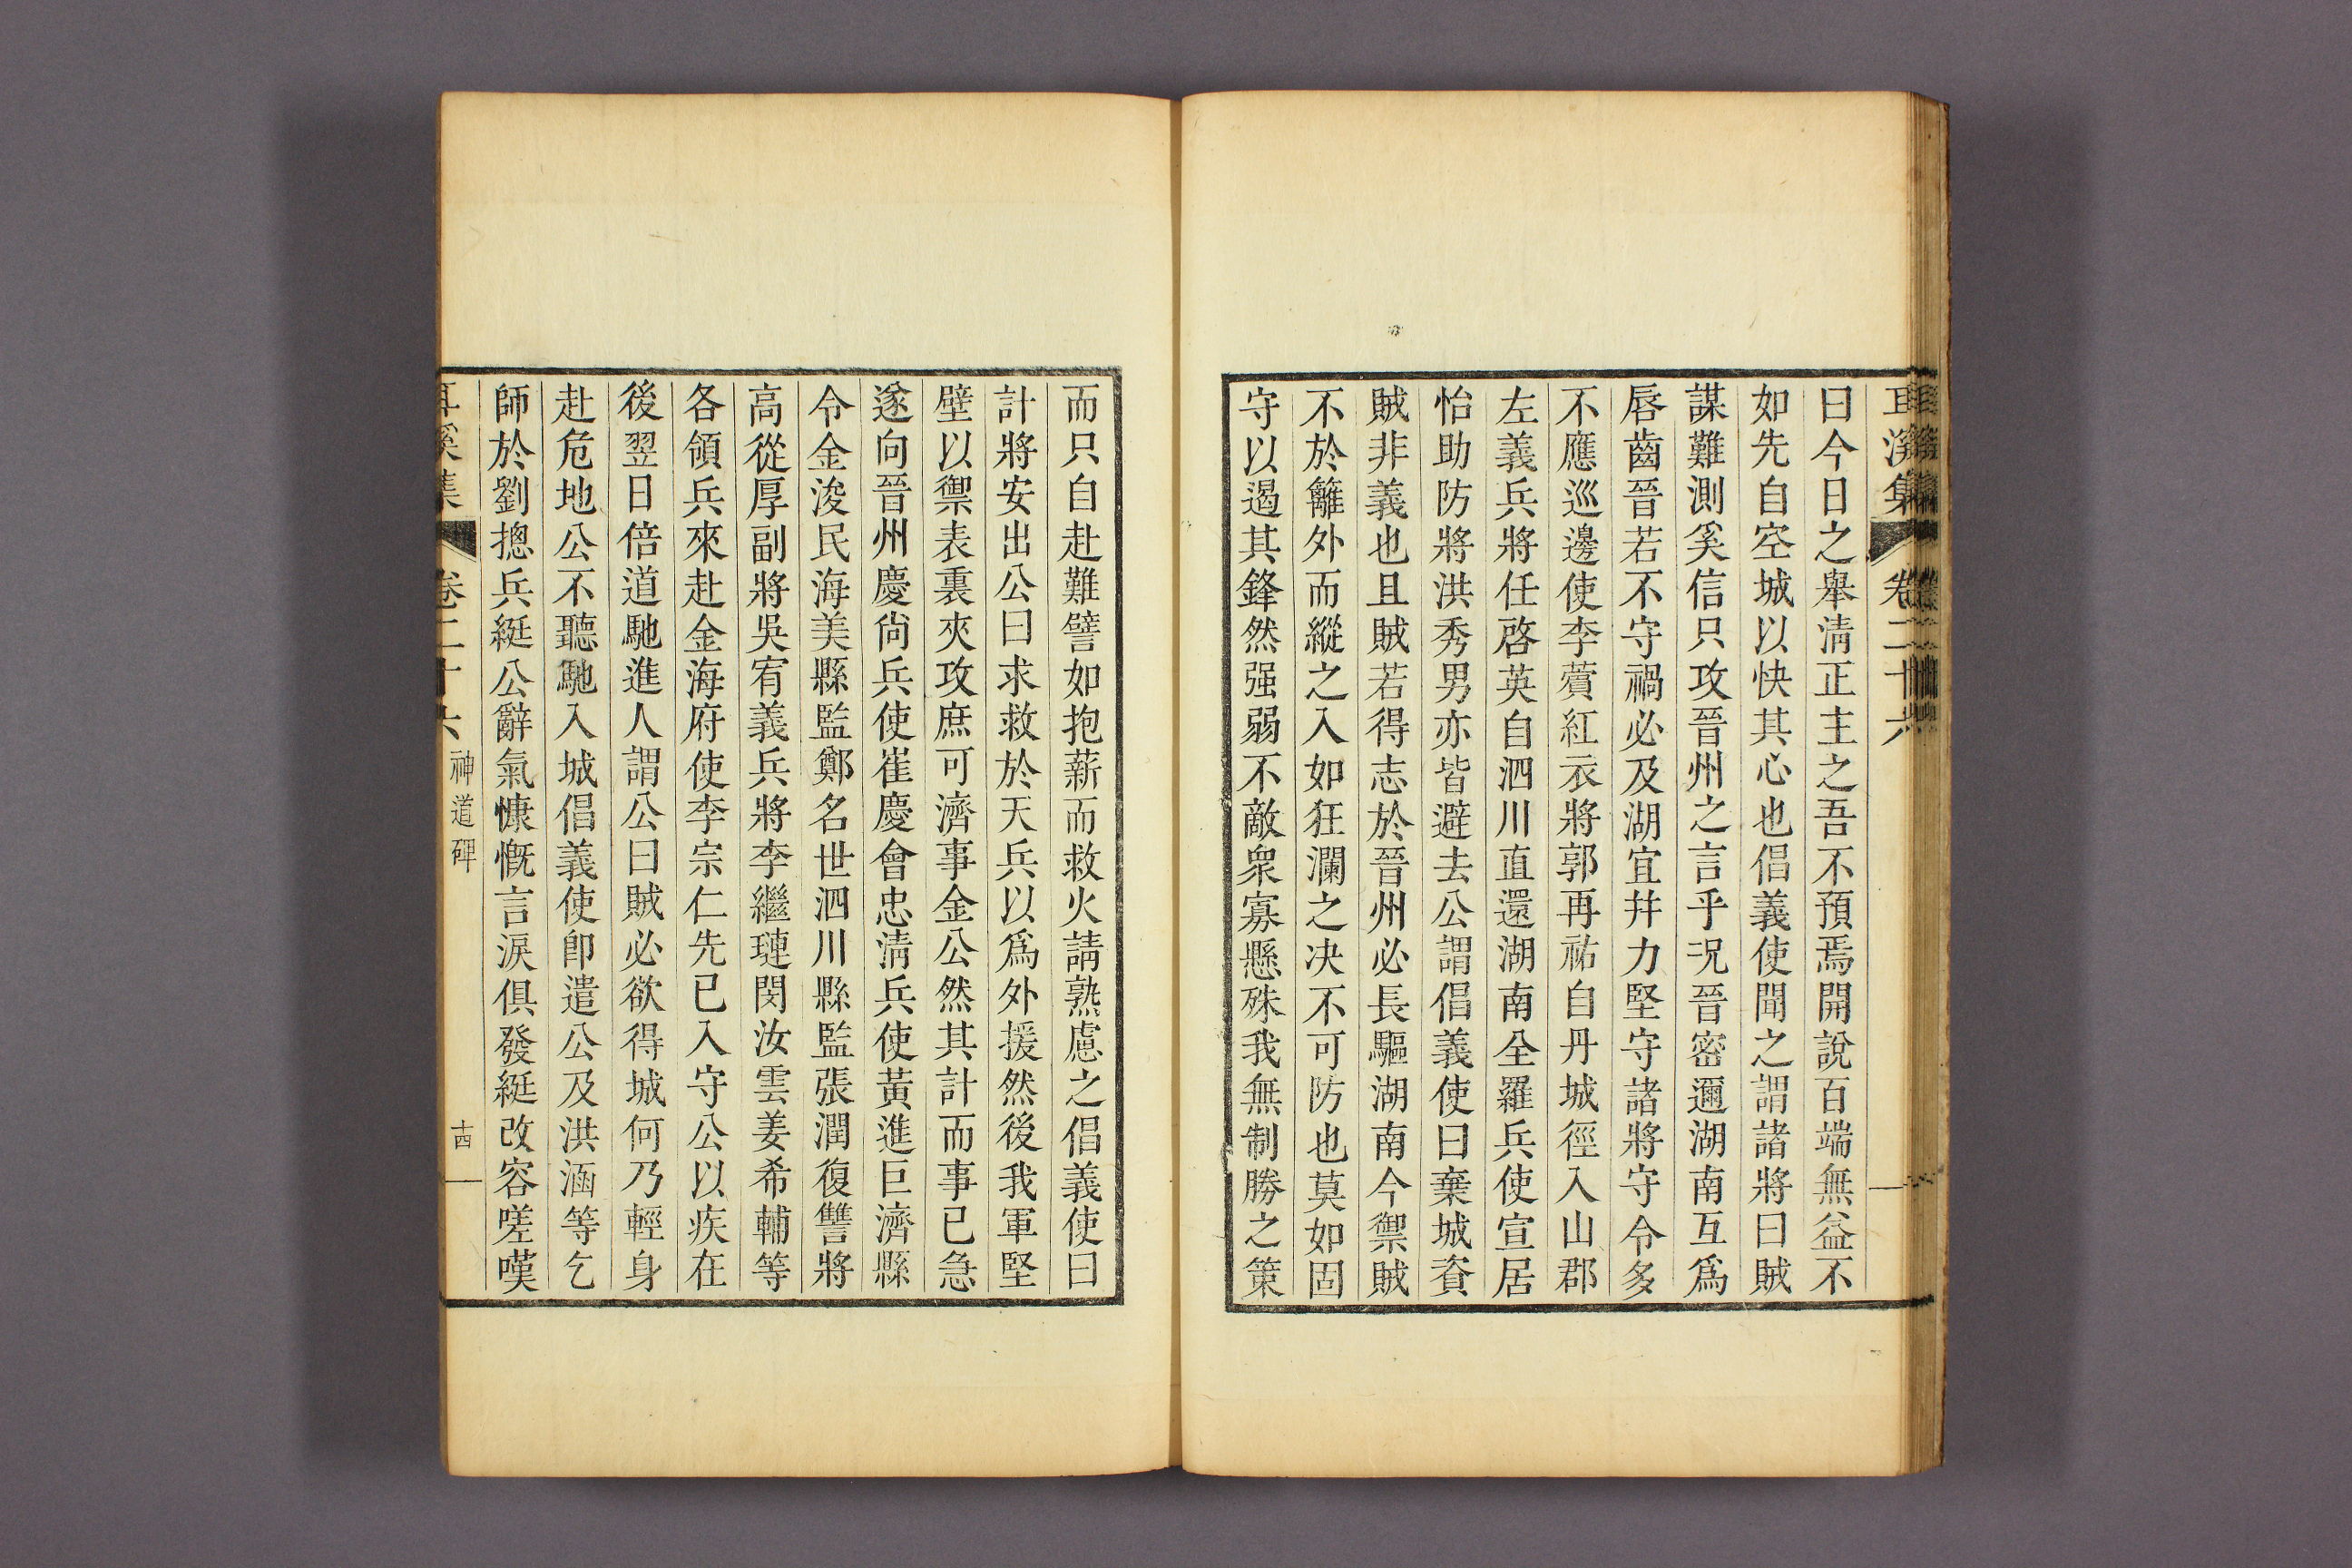 耳溪集 卷二十六
曰今日之擧淸正主之吾不預焉開說百端無益不
如先自空城以快其心也倡義使聞之謂諸將曰賊
謀難測奚信只攻晉州之言乎况晉密邇湖南互爲
唇齒晉若不守禍必及湖宜幷力堅守諸將守令多
不應巡邊使李薲紅衣將郭再祐自丹城徑入山郡
左義兵將任啓英自泗川直還湖南全羅兵使宣居
怡助防將洪秀男亦皆避去公謂倡義使曰棄城資
賊非義也且賊若得志於晉州必長驅湖南今禦賊
不於籬外而縱之入如狂瀾之决不可防也莫如固
守以遏其鋒然强弱不敵衆寡懸殊我無制勝之策
而只自赴難譬如抱薪而救火請熟慮之倡義使曰
計將安出公曰求救於天兵以爲外援然後我軍堅
壁以禦表裏夾攻庶可濟事金公然其計而事已急
遂向晉州慶尙兵使崔慶會忠淸兵使黃進巨濟縣
令金浚民海美縣監鄭名世泗川縣監張潤復讐將
高從厚副將吳宥義兵將李繼璉閔汝雲姜希輔等
各領兵來赴金海府使李宗仁先已入守公以疾在
後翌日倍道馳進人謂公曰賊必欲得城何乃輕身
赴危地公不聽馳入城倡義使卽遣公及洪涵等乞
師於劉摠兵綎公辭氣慷慨言淚俱發綎改容嗟嘆
耳溪集 卷二十六 神道碑 十四